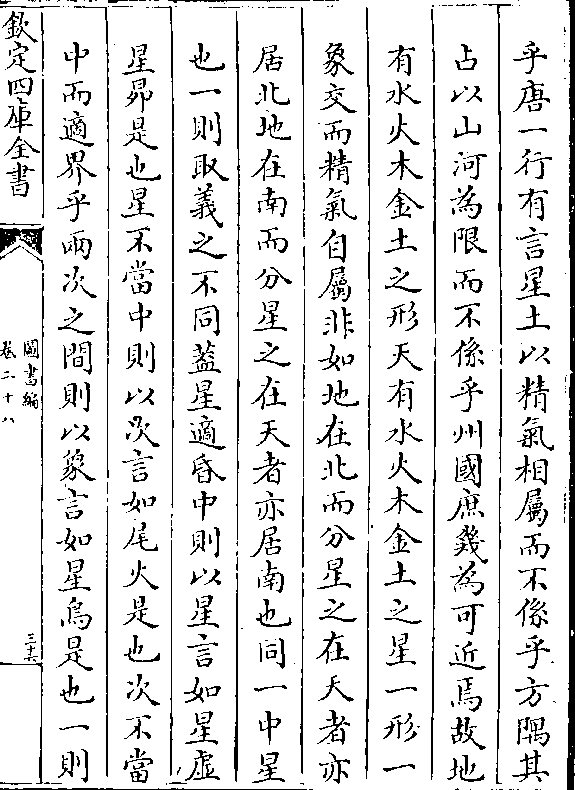 乎唐一行有言星土以精氣相屬而不係乎方隅其
占以山河為限而不係乎州國庶幾為可近焉故地
有水火木金土之形天有水火木金土之星一形一
象交而精氣自屬非如地在北而分星之在天者亦
居北地在南而分星之在天者亦居南也同一中星
也一則取義之不同蓋星適昏中則以星言如星虛
星昴是也星不當中則以次言如尾火是也次不當
中而適界乎兩次之間則以象言如星鳥是也一則
欽定四庫全書
圖書編
卷二十八
三十六